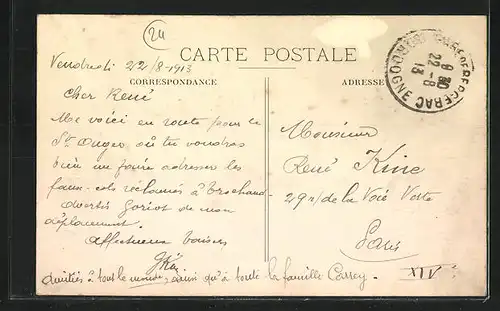 24
Vendredi 22/8-1913
CARTE POSTALE
CORRESPONDANCE
ADRESSE
Cher René
Me voici en route pour le
St où tu voudras
bien me faire adresser les
faux-cols réclamés à
avertis de mon
déplacement.
Affectueux baisers
Amitiés à tout le monde, ainsi qu'à toute la famille
Monsieur
René
29 r/ de la Voie Verte
Paris
XIV
DORDOGNE
22-8
13